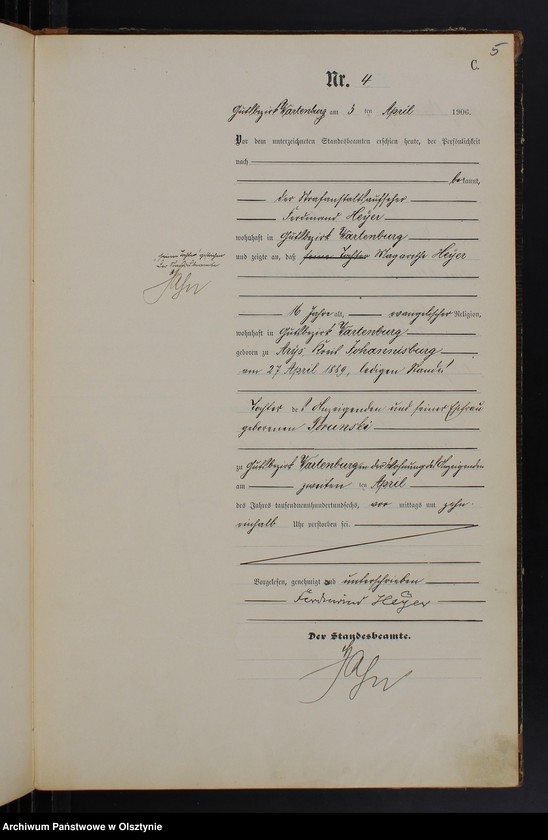 5
C.
Nr. 4
Gutsbezirk Wartenburg am 3 ten April 1906.
Vor dem unterzeichneten Standesbeamten erschien heute, der Persönlichkeit
nach
bekannt,
der Strafanstaltsaufseher
Ferdinand Heyer
wohnhaft in Gutsbezirk Wartenburg
und zeigte an, daß seine Tochter Magarethe Heyer
"seine Tochter" gestrichen
Der Standesbeamte
Jahn
16 Jahre alt, evangelischer Religion,
wohnhaft in Gutsbezirk Wartenburg
geboren zu Arys, Kreis Johannisburg
am 27 April 1889, ledigen Standes
Tochter des Anzeigenden und seiner Ehefrau
geborenen Brunski
zu Gutsbezirk Wartenburg in der Wohnung des Anzeigenden
am zweiten ten April
des Jahres tausendneunhundertsechs, vor mittags um zehn
einhalb Uhr verstorben sei.
Vorgelesen, genehmigt und unterschrieben
Ferdinand Heyer
Der Standesbeamte.
Jahn
Archiwum Państwowe w Olsztynie